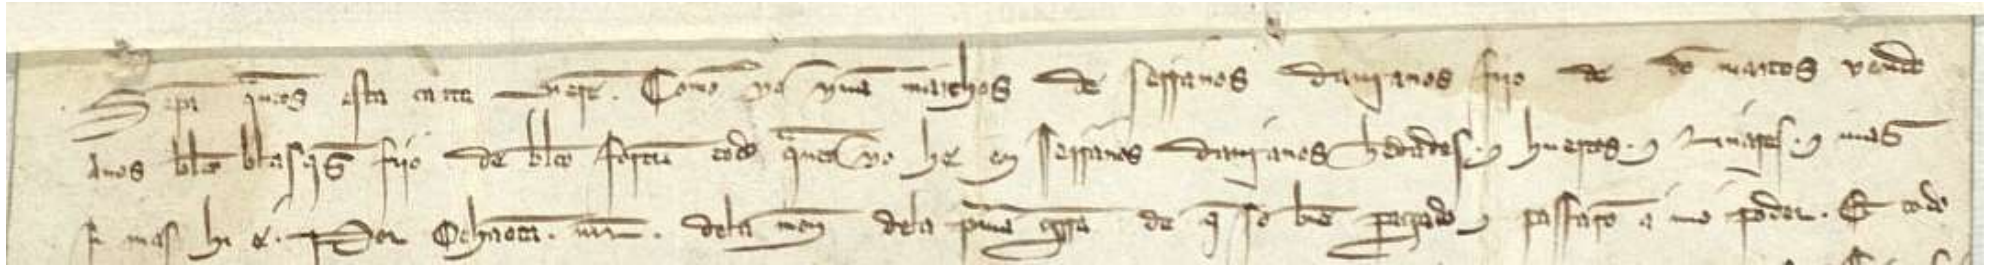 Sepā q̄ntos esta carta vierē. Como yo yuā marchos de serranos dauianos fijo de dō marcos vendo
auos blco blasq̄s fijo de blco fortū todo q̄nto yo he en serranos dauianos heredades. y huertos. y linares. y mas
si mas hi é. Por Ochaenta. mr̄. dela mon dela p̄ma gr̄ra de q̄ so biē pagado y passarō a mio poder. E todo